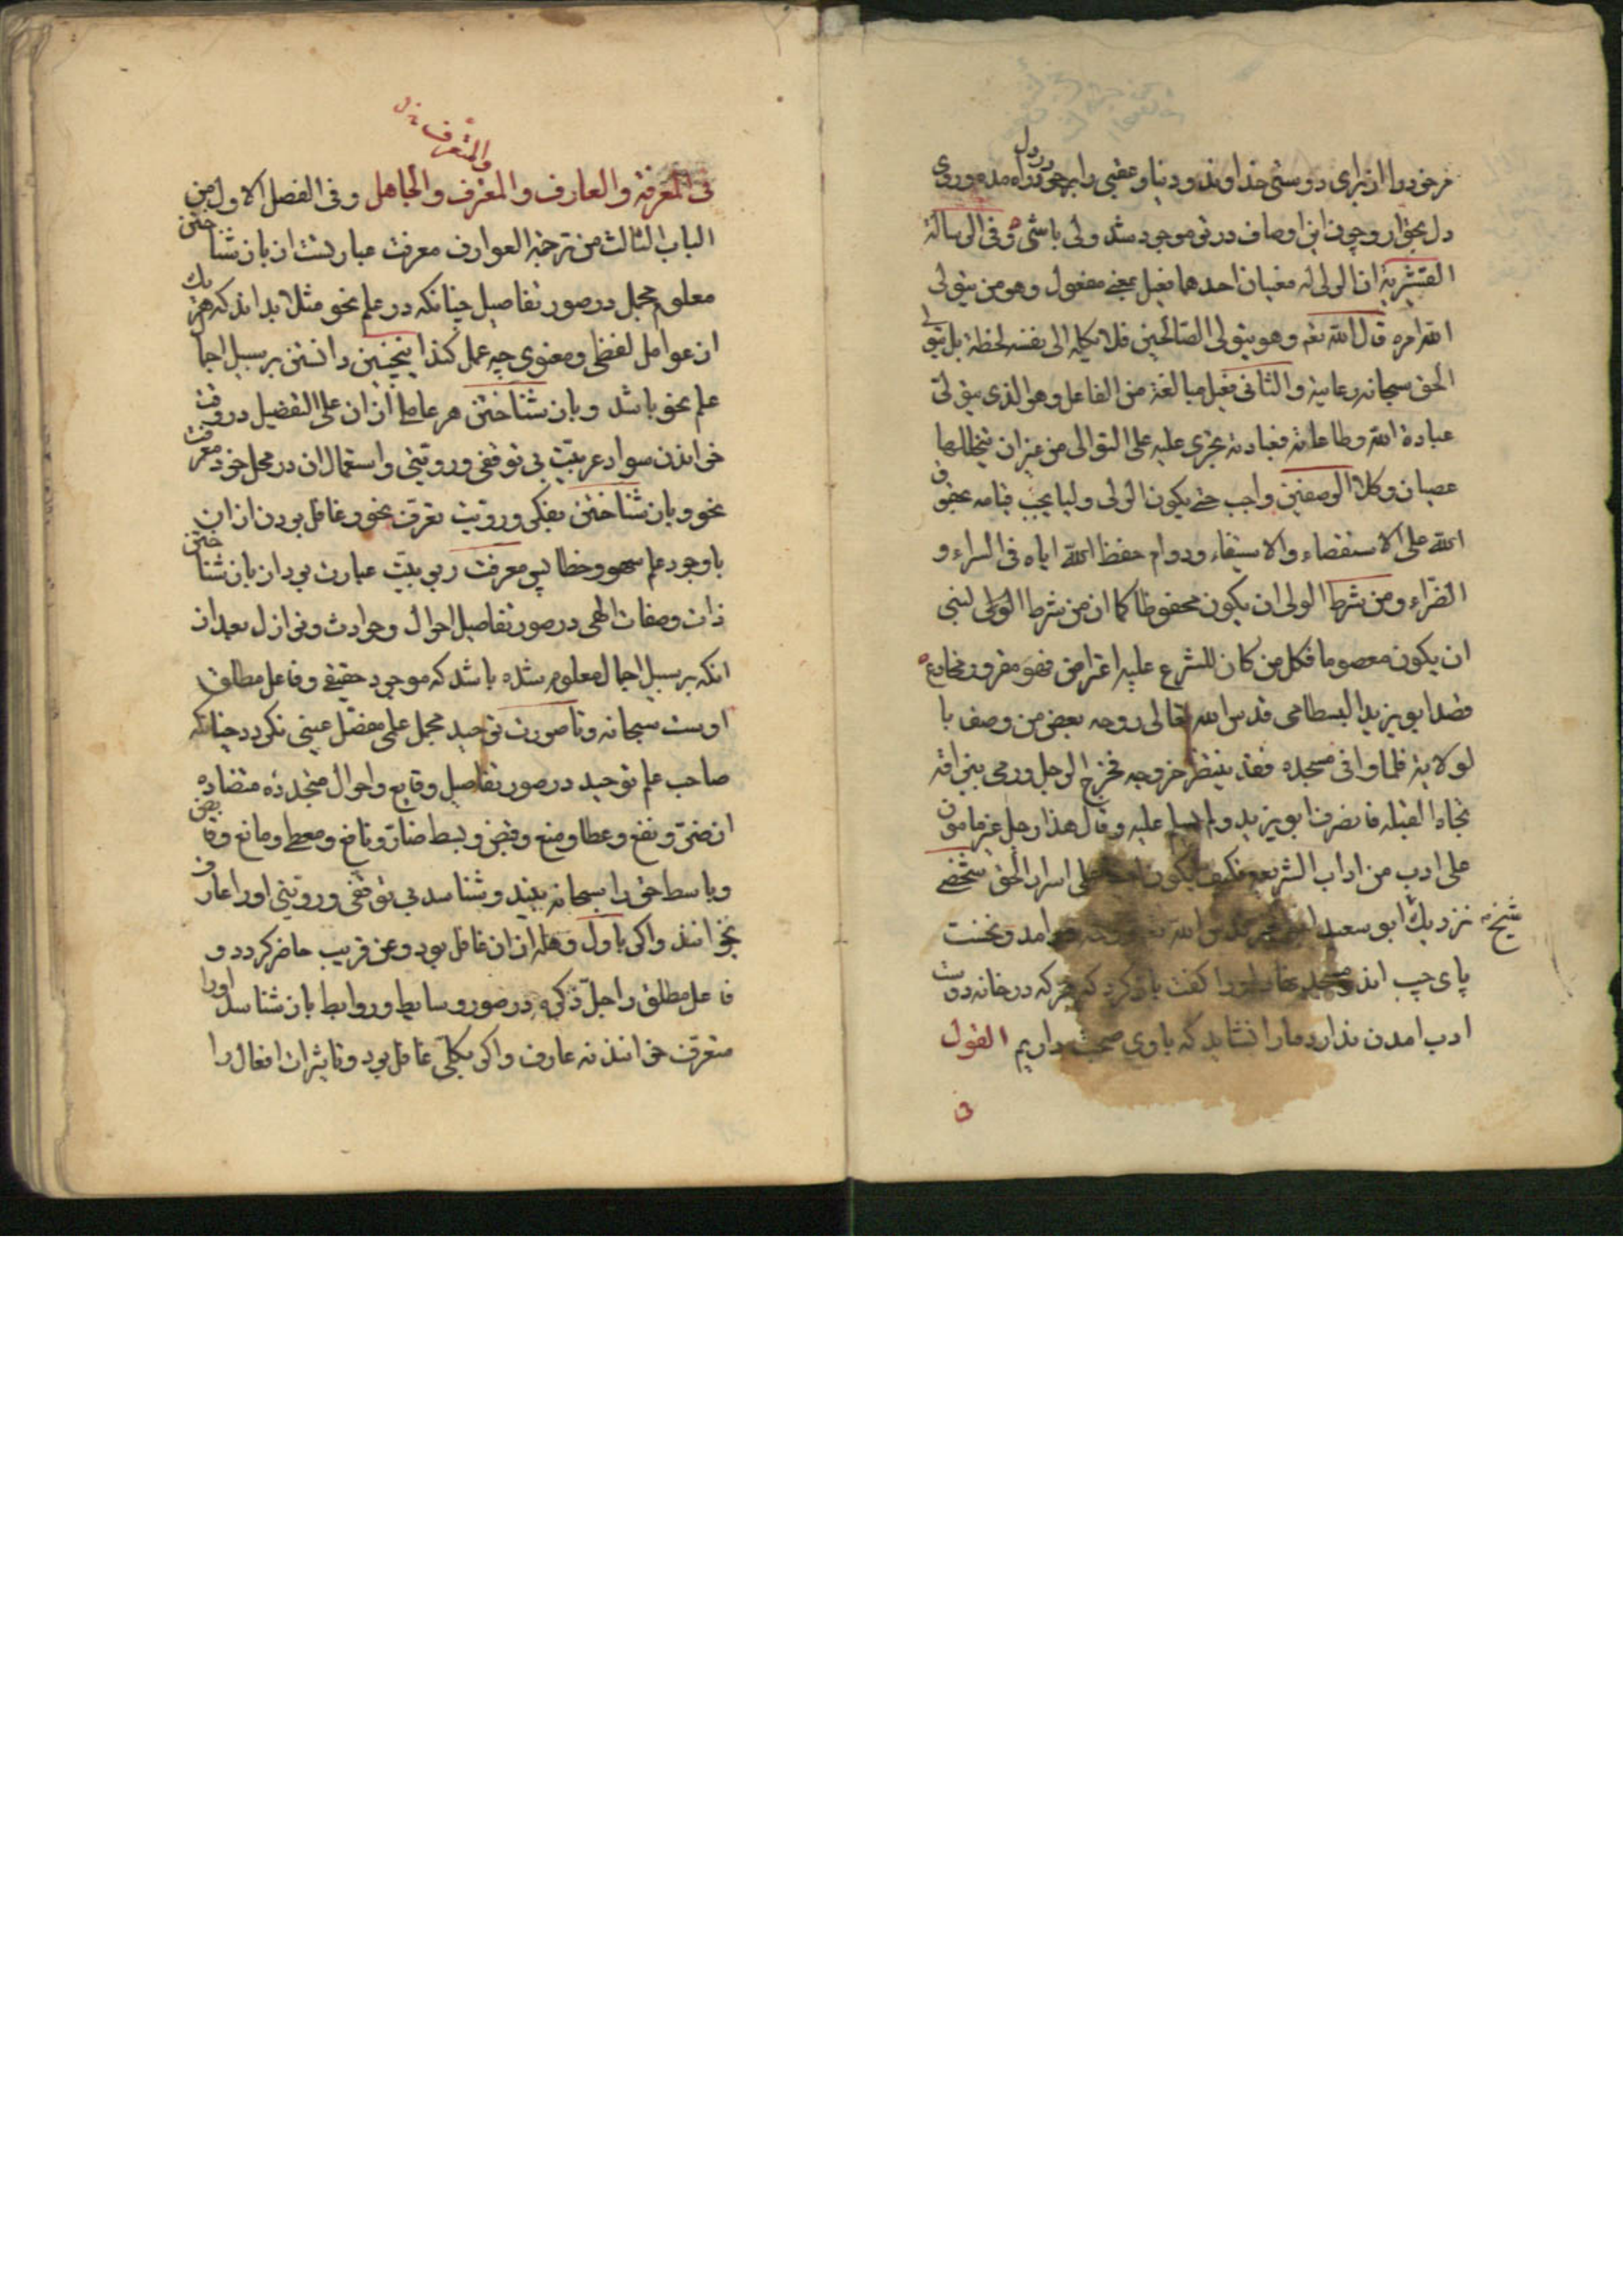 مر خود را از برای دوستی خداوند و دنیا و عقبی را بر خود راه مده و روی
دل بحق آر و چون این اوصاف در تو موجود شد ولی باشی وفی الرسالة
القشیریة ان الولی له معنیان احدهما فعیل بمعنی مفعول وهو من یتولی
الله امره قال الله تعه وهو یتولی الصالحین فلا یکله الی نفسه لحظة بل یتولی
الحق سبحانه رعایته والثانی فعیل مبالغة من الفاعل وهو الذی یتولی
عبادة الله وطاعاته فعبادته تجری علیه علی التوالی من غیر ان یتخللها
عصیان وکلا الوصفین واجب حتی یکون الولی ولیا یجب قیامه بحقوق
الله علی الاستقصاء والاستیفاء ودوام حفظ الله ایاه فی السراء و
الضراء ومن شرط الولی ان یکون محفوظا کما ان من شرط النبی
ان یکون معصوما فکل من کان للشرع علیه اعتراض فهو مغرور مخادع
قصد ابو یزید البسطامی قدس الله تعالی روحه بعض من وصف با
لولایة فلما وافی مسجده قعد ینتظر خروجه فخرج الرجل ورمی ببزاقه
تجاه القبلة فانصرف ابو یزید ولم یسلم علیه وقال هذا رجل غیر مامون
علی ادب من اداب الشریعة فکیف یکون امینا علی اسرار الحق شخصی
نزدیک شیخ ابو سعید ابو الخیر قدس الله تعه روحه در آمد و نخست
پای چپ اندر مسجد نهاد او را کفت باز کرد که هر که در خانه دوست
ادب امدن نداند ما را نشاید که با وی صحبت داریم القول
والمتعرف
فی المعرفة والعارف والمعرف والجاهل وفی الفصل الاول من
الباب الثالث من ترجمة العوارف معرفت عبارتست از بازشناختن
معلوم مجمل در صور تفاصیل چنانکه در علم نحو مثلا بداند که هر یک
از عوامل لفظی و معنوی چه عمل کند اینچنین دانستن بر سبیل اجمال
علم نحو باشد و باز شناختن هر عاملی از ان علی التفصیل در وقت
خواندن سواد عربیت بی توقفی و رویتی و استعمال ان در محل خود معرفت
نحو و باز شناختن بفکر و رویت تعرف نحو و غافل بودن از ان
با وجود علم سهو و خطا پس معرفت ربوبیت عبارت بود از باز شناختن
ذات و صفات الهی در صور تفاصیل احوال و حوادث و نوازل بعد از
انکه بر سبیل اجمال معلوم شده باشد که موجود حقیقی و فاعل مطلق
اوست سبحانه و تا صورت توحید مجمل علمی مفصل عینی نکردد چنانکه
صاحب علم توحید در صور تفاصیل وقایع و احوال متجدده متضاده
از ضر و نفع و عطا و منع و قبض و بسط ضار و نافع و معطی و مانع و قابض
و باسط حق را سبحانه بیند و شناسد بی توقفی و رویتی او را عارف
خوانند و اکر باول وهله از ان غافل بود و عن قریب حاضر کردد و
فاعل مطلق را جل ذکره در صور وسایط و روابط باز شناسد او را
متعرف خوانند نه عارف و اکر بکلی غافل بود و تاثیرات افعال را